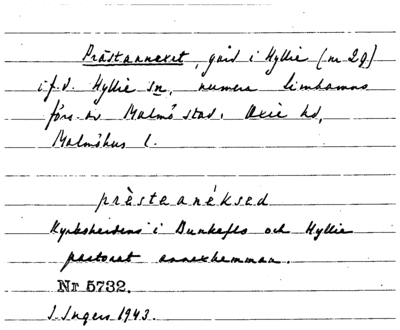 Prästannexet, gård i Hyllie (nr 29)
i f.d. Hyllie sn, numera Limhamns
förs. av Malmö stad. Oxie hd,
Malmöhus l.
prèsteanéksed
Kyrkoherdens i Bunkeflo och Hyllie
pastorat annexhemman.
Nr 5732.
I. Ingers 1943.